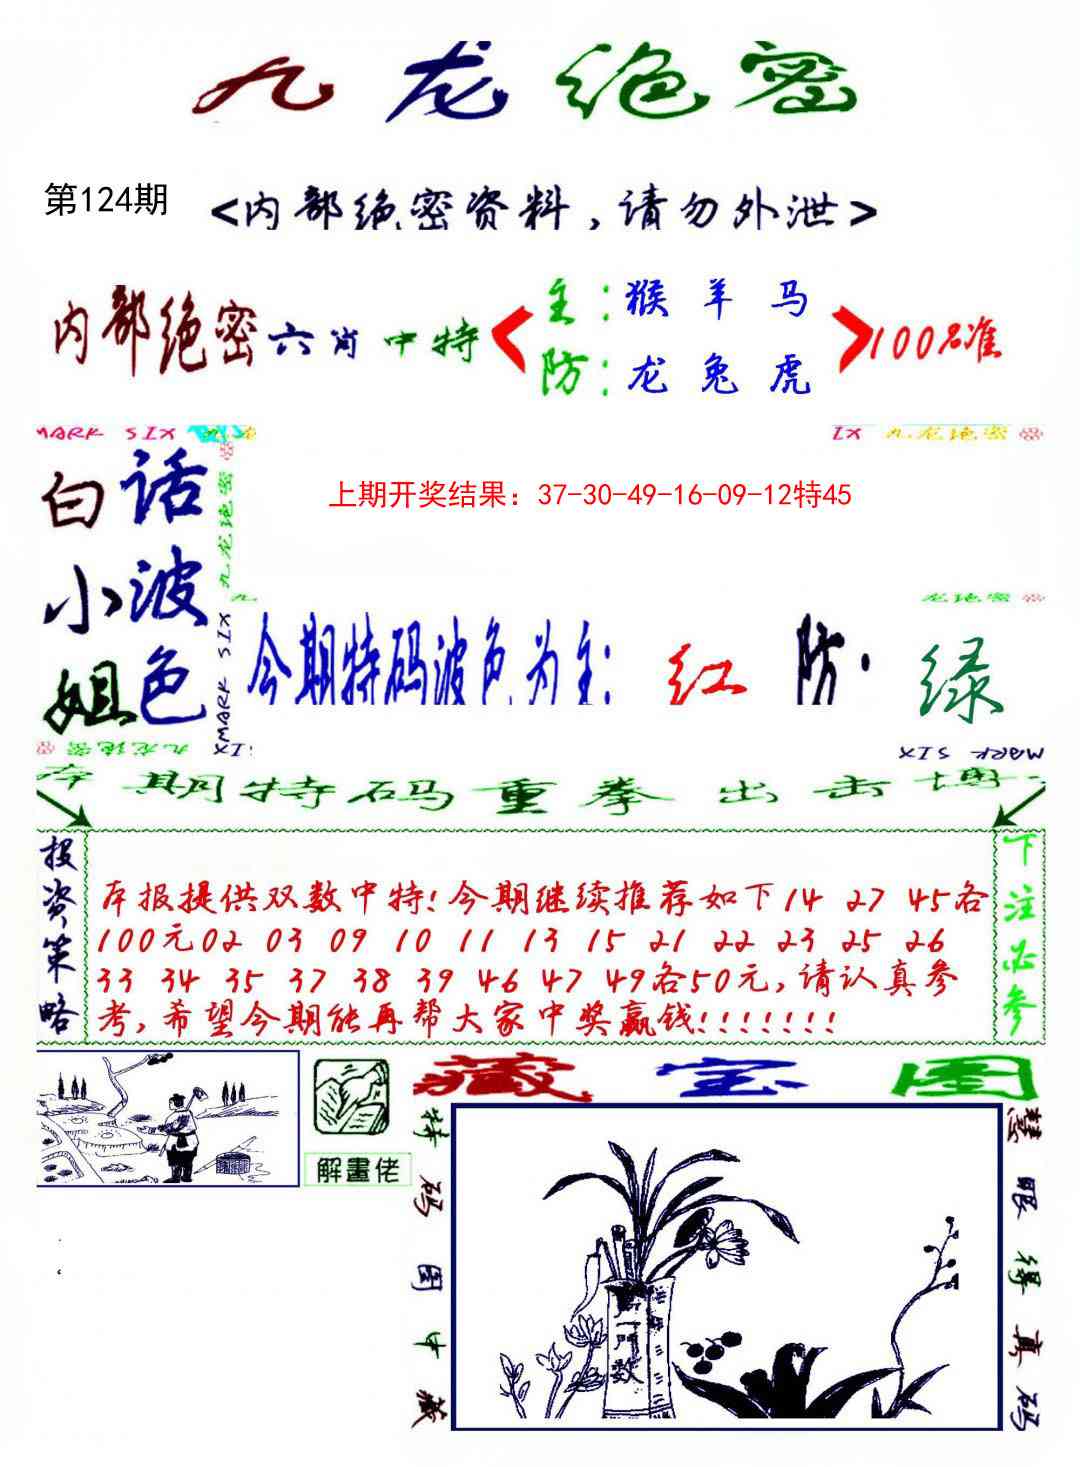 九龙绝密
第124期
<内部绝密资料,请勿外泄>
内部绝密六肖中特
主:猴 羊 马
防:龙 兔 虎
100%准
MARK SIX
IX 九龙绝密
白话
小波
姐色
九龙绝密
MARK SIX
上期开奖结果：37-30-49-16-09-12特45
龙绝密
今期特码波色为主: 红 防· 绿
九龙绝密
XIS
MARK SIX
本期特码重拳出击博
投资策略
本报提供双数中特!今期继续推荐如下14 27 45各
100元02 03 09 10 11 13 15 21 22 23 25 26
33 34 35 37 38 39 46 47 49各50元,请认真参
考,希望今期能再帮大家中奖赢钱!!!!!!!
下注必参
解畫佬
藏宝图
特码图中藏
慧眼得真码